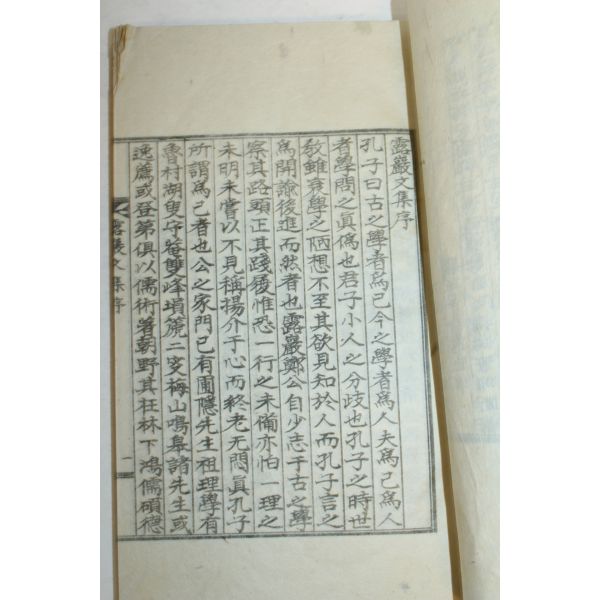 露巖文集序
孔子曰古之學者爲己今之學者爲人夫爲己爲人
者學問之眞僞也君子小人之分歧也孔子之時世
敎雖衰學之陋想不至其欲見知於人而孔子言之
爲開諭後進而然者也露巖鄭公自少志于古之學
察其路頭正其踐履惟恐一行之未備亦怕一理之
未明未嘗以不見稱揚介于心而終老无悶眞孔子
所謂爲己者也公之家門已有圃隱先生祖理學有
魯村湖叟守菴雙峰塤箎二叟梅山鳴皐諸先生或
逸薦或登第俱以儒術著朝野其在林下鴻儒碩德
露巖文集序
一